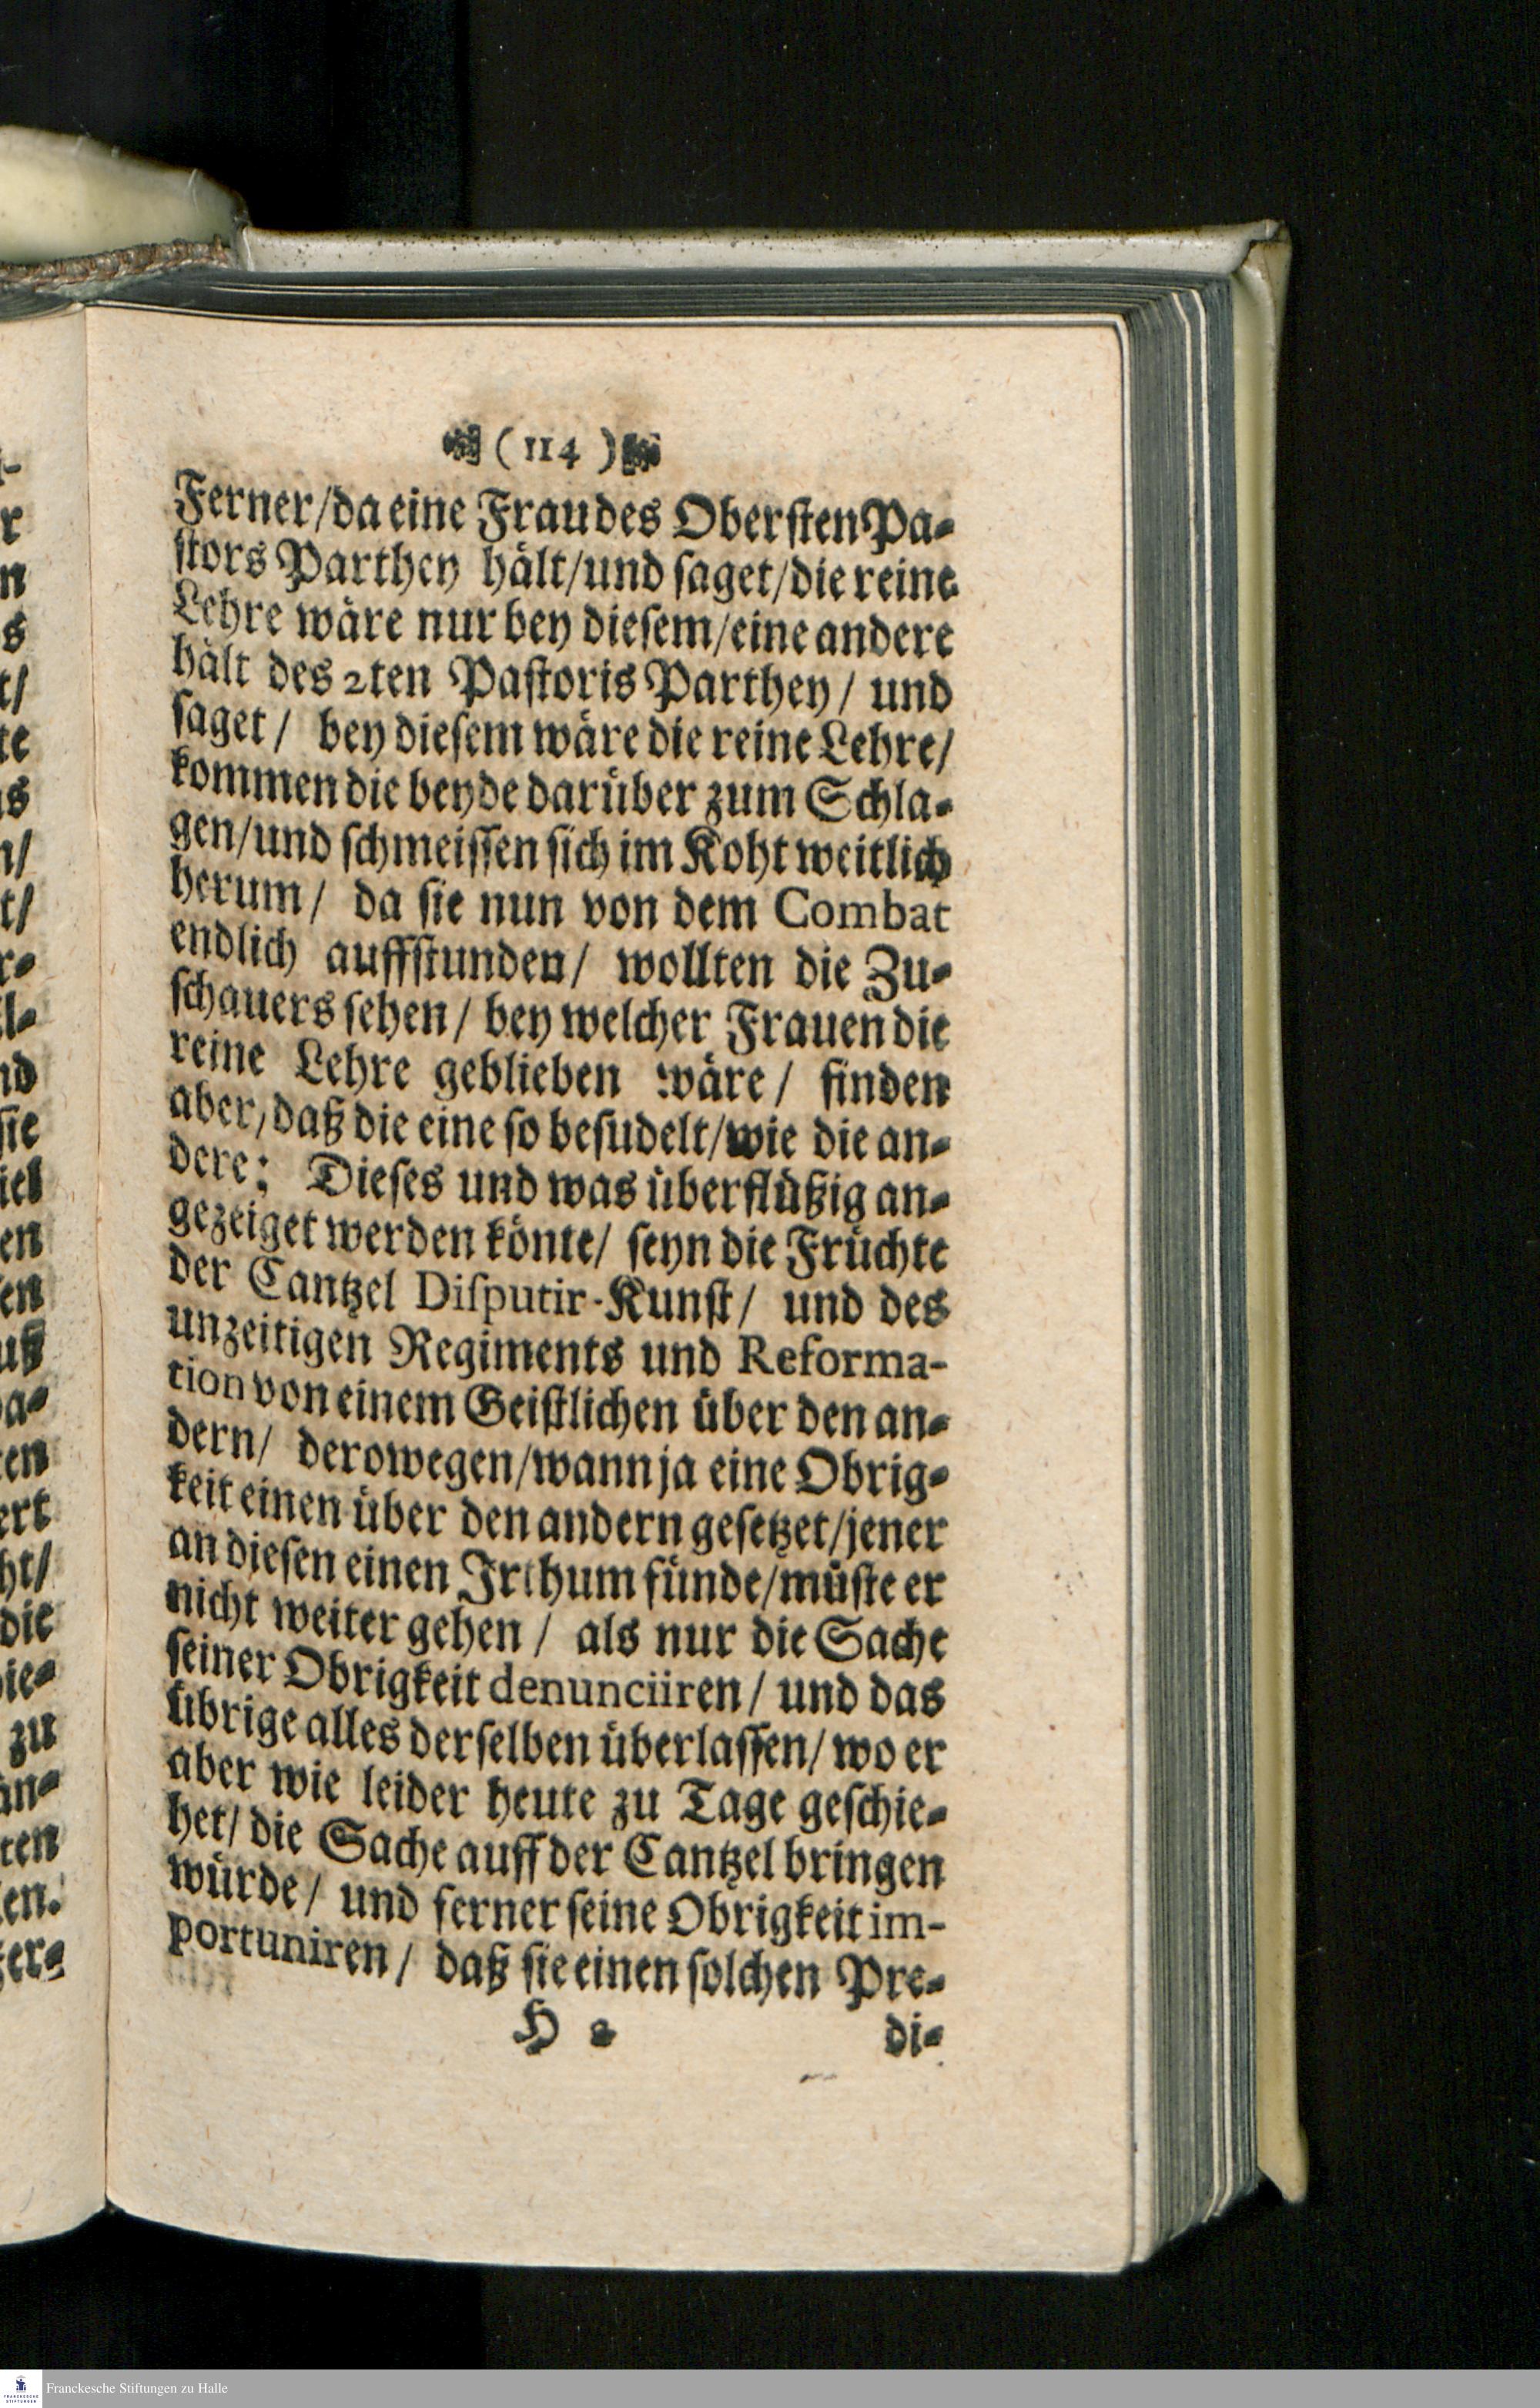 ( 114 )
Ferner/da eine Frau des Obersten Pa-
stors Parthey hält/und saget/die reine
Lehre wäre nur bey diesem/eine andere
hält des 2ten Pastoris Parthey/ und
saget/ bey diesem wäre die reine Lehre/
kommen die beyde darüber zum Schla-
gen/und schmeissen sich im Koht weitlich
herum/ da sie nun von dem Combat
endlich auffstunden/ wollten die Zu-
schauers sehen/ bey welcher Frauen die
reine Lehre geblieben wäre/ finden
aber/daß die eine so besudelt/wie die an-
dere; Dieses und was überflüßig an-
gezeiget werden könte/ seyn die Früchte
der Cantzel Disputir-Kunst/ und des
unzeitigen Regiments und Reforma-
tion von einem Geistlichen über den an-
dern/ derowegen/wann ja eine Obrig-
keit einen über den andern gesetzet/jener
an diesen einen Irthum fünde/müste er
nicht weiter gehen/ als nur die Sache
seiner Obrigkeit denunciiren/ und das
übrige alles derselben überlassen/wo er
aber wie leider heute zu Tage geschie-
het/ die Sache auff der Cantzel bringen
würde/ und ferner seine Obrigkeit im-
portuniren/ daß sie einen solchen Pre-
H 2 di-
r
n
s
t/
te
n/
t/
nd
sie
iel
en
en
ert
ht/
die
ie-
zu
an-
ten
en.
er-
Franckesche Stiftungen zu Halle
FRANCKESCHE
STIFTUNGEN